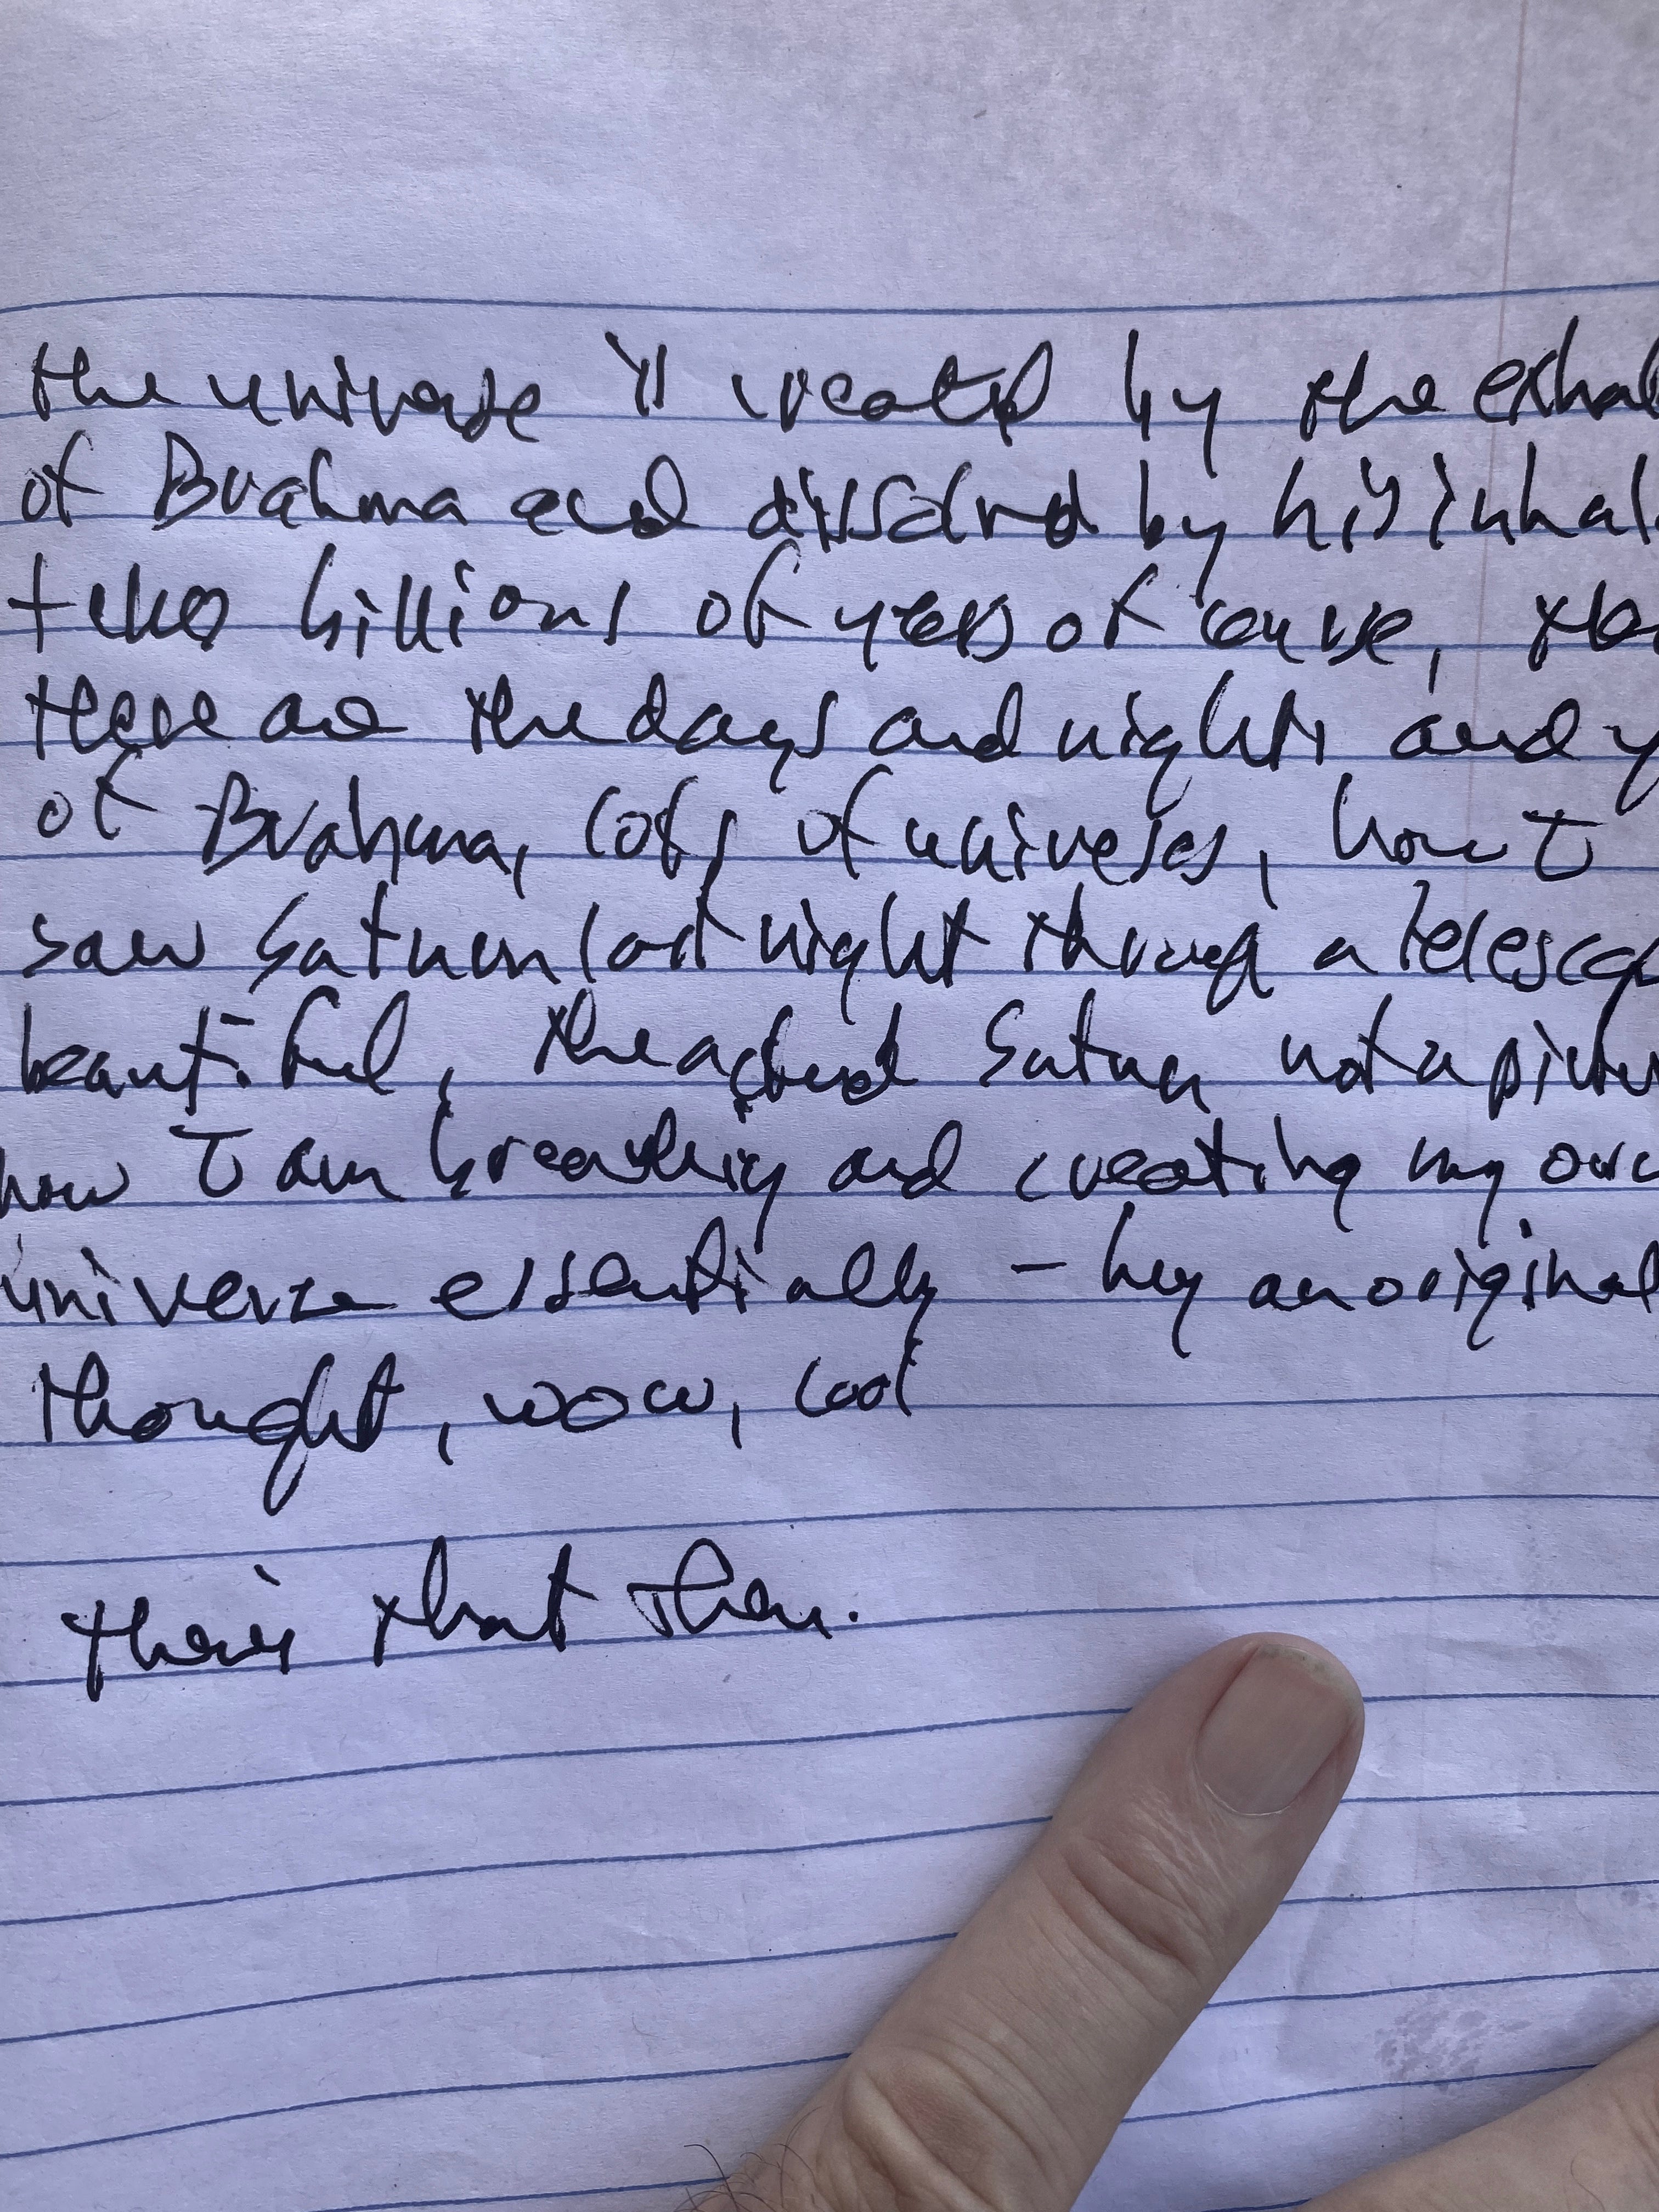 the universe is created by the exhal
of Brahma and dissolved by his inhal
takes billions of years of course, the
there are the days and nights and y
of Brahma, lots of universes, how I
saw Saturn last night through a telescop
beautiful, the actual Saturn not a pictu
how I am breathing and creating my own
universe essentially – hey an original
thought, wow, cool
there's that then.